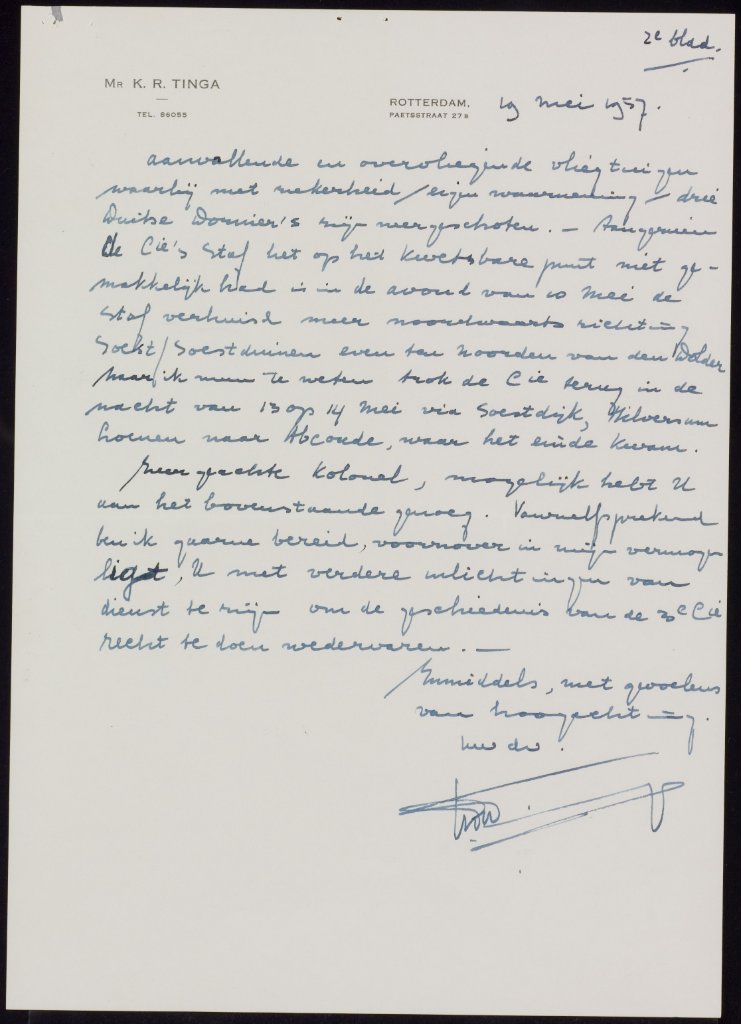 2e blad.
Mr K. R. TINGA
TEL. 86055
ROTTERDAM, 19 mei 1957.
PAETSSTRAAT 27B
aanvallende en overvliegende vliegtuigen
waarbij met zekerheid /eigen waarneming/ drie
Duitse Dornier's zijn neergeschoten. — Aangezien
de Cie's Staf het op het kwetsbare punt niet ge-
makkelijk had is in de avond van 10 Mei de
Staf verhuisd meer noordwaarts richting
Soest/Soestduinen even ten noorden van den Dolder
Naar ik meen te weten trok de Cie terug in de
nacht van 13 op 14 Mei via Soestdijk, Hilversum
Loenen naar Abcoude, waar het einde kwam.
Zeer geachte Kolonel, mogelijk hebt U
aan het bovenstaande genoeg. Vanzelfsprekend
ben ik gaarne bereid, voorzover in mijn vermogen
ligt, U met verdere inlichtingen van
dienst te zijn om de geschiedenis van de Cie
recht te doen wedervaren. —
Inmiddels, met gevoelens
van hoogachting.
Uw dw.